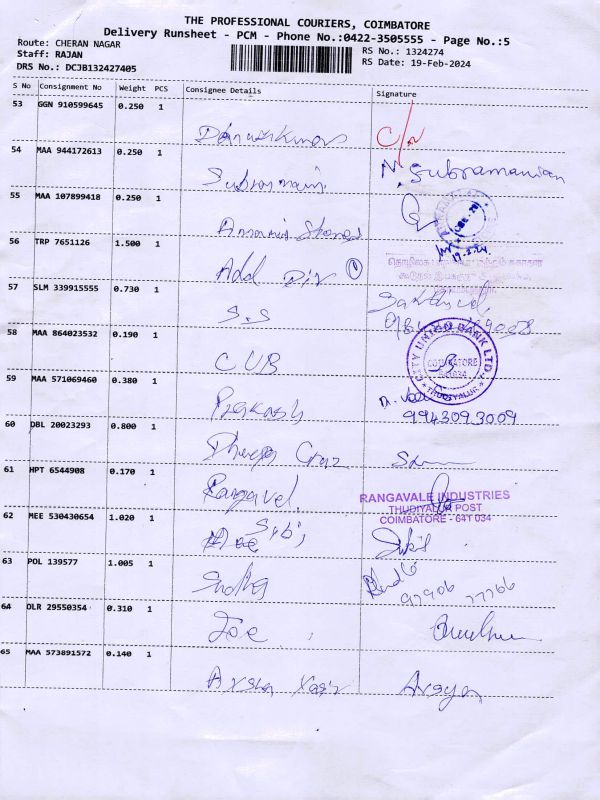 THE PROFESSIONAL COURIERS, COIMBATORE
Delivery Runsheet - PCM - Phone No.:0422-3505555 - Page No.:5
Route: CHERAN NAGAR
RS No.: 1324274
Staff: RAJAN
RS Date: 19-Feb-2024
DRS No.: DCJB132427405
S No Consignment No Weight PCS Consignee Details Signature
53 GGN 910599645 0.250 1
C/n
54 MAA 944172613 0.250 1
N. Subramanian
Subramani
55 MAA 107899418 0.250 1
Stores
19.2.24
56 TRP 7651126 1.500 1
Add Dir
57 SLM 339915555 0.730 1
Sakthivel,
S.S
58 MAA 864023532 0.190 1
CITY UNION BANK LTD
COIMBATORE
641034
* THUDIYALUR *
CUB
59 MAA 571069460 0.380 1
Prakash
9943093009
60 DBL 20023293 0.800 1
61 HPT 6544908 0.170 1
Rangavel
RANGAVALE INDUSTRIES
THUDIYALUR POST
COIMBATORE - 641 034
62 MEE 530430654 1.020 1
Sibi
63 POL 139577 1.005 1
Sudha
97906 77766
64 OLR 29550354 0.310 1
Joe
65 MAA 573891572 0.140 1